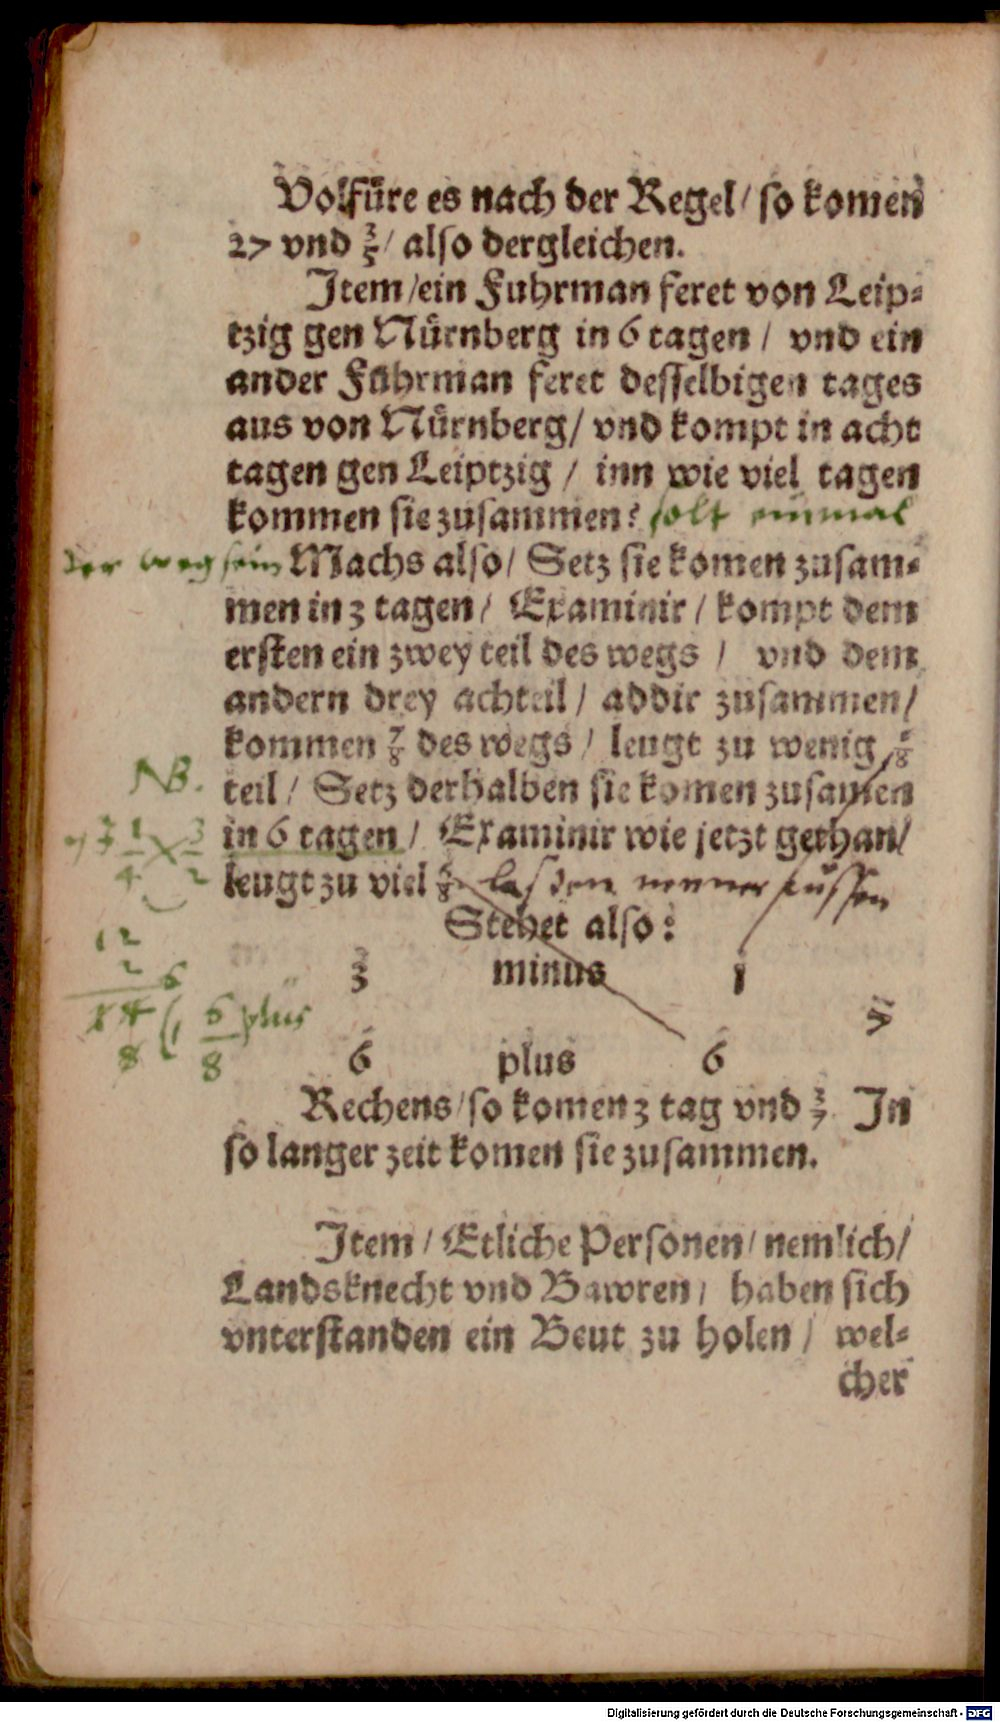 Volfüre es nach der Regel / so komen
27 vnd 3/5 / also dergleichen.
Item / ein Fuhrman feret von Leip⸗
tzig gen Nürnberg in 6 tagen / vnd ein
ander Fuhrman feret desselbigen tages
aus von Nürnberg / vnd kompt in acht
tagen gen Leiptzig / inn wie viel tagen
kommen sie zusammen? solt einmal
der weg sein Machs also / Setz sie komen zusam⸗
men in 3 tagen / Examinir / kompt dem
ersten ein zwey teil des wegs / vnd dem
andern drey achteil / addir zusammen /
kommen 7/8 des wegs / leugt zu wenig 1/8
NB.
teil / Setz derhalben sie komen zusamen
in 6 tagen / Examinir wie jetzt gethan /
3 1 3
4 2
leugt zu viel 6/8 las den nenner
Stehet also:
12
2
3 minus 1
6
14 ( 1 6/8 plus
8
7
6 plus 6
Rechens / so komen 3 tag vnd 3/7 In
so langer zeit komen sie zusammen.
Item / Etliche Personen / nemlich /
Landsknecht vnd Bawren / haben sich
vnterstanden ein Beut zu holen / wel⸗
cher
Digitalisierung gefördert durch die Deutsche Forschungsgemeinschaft - DFG